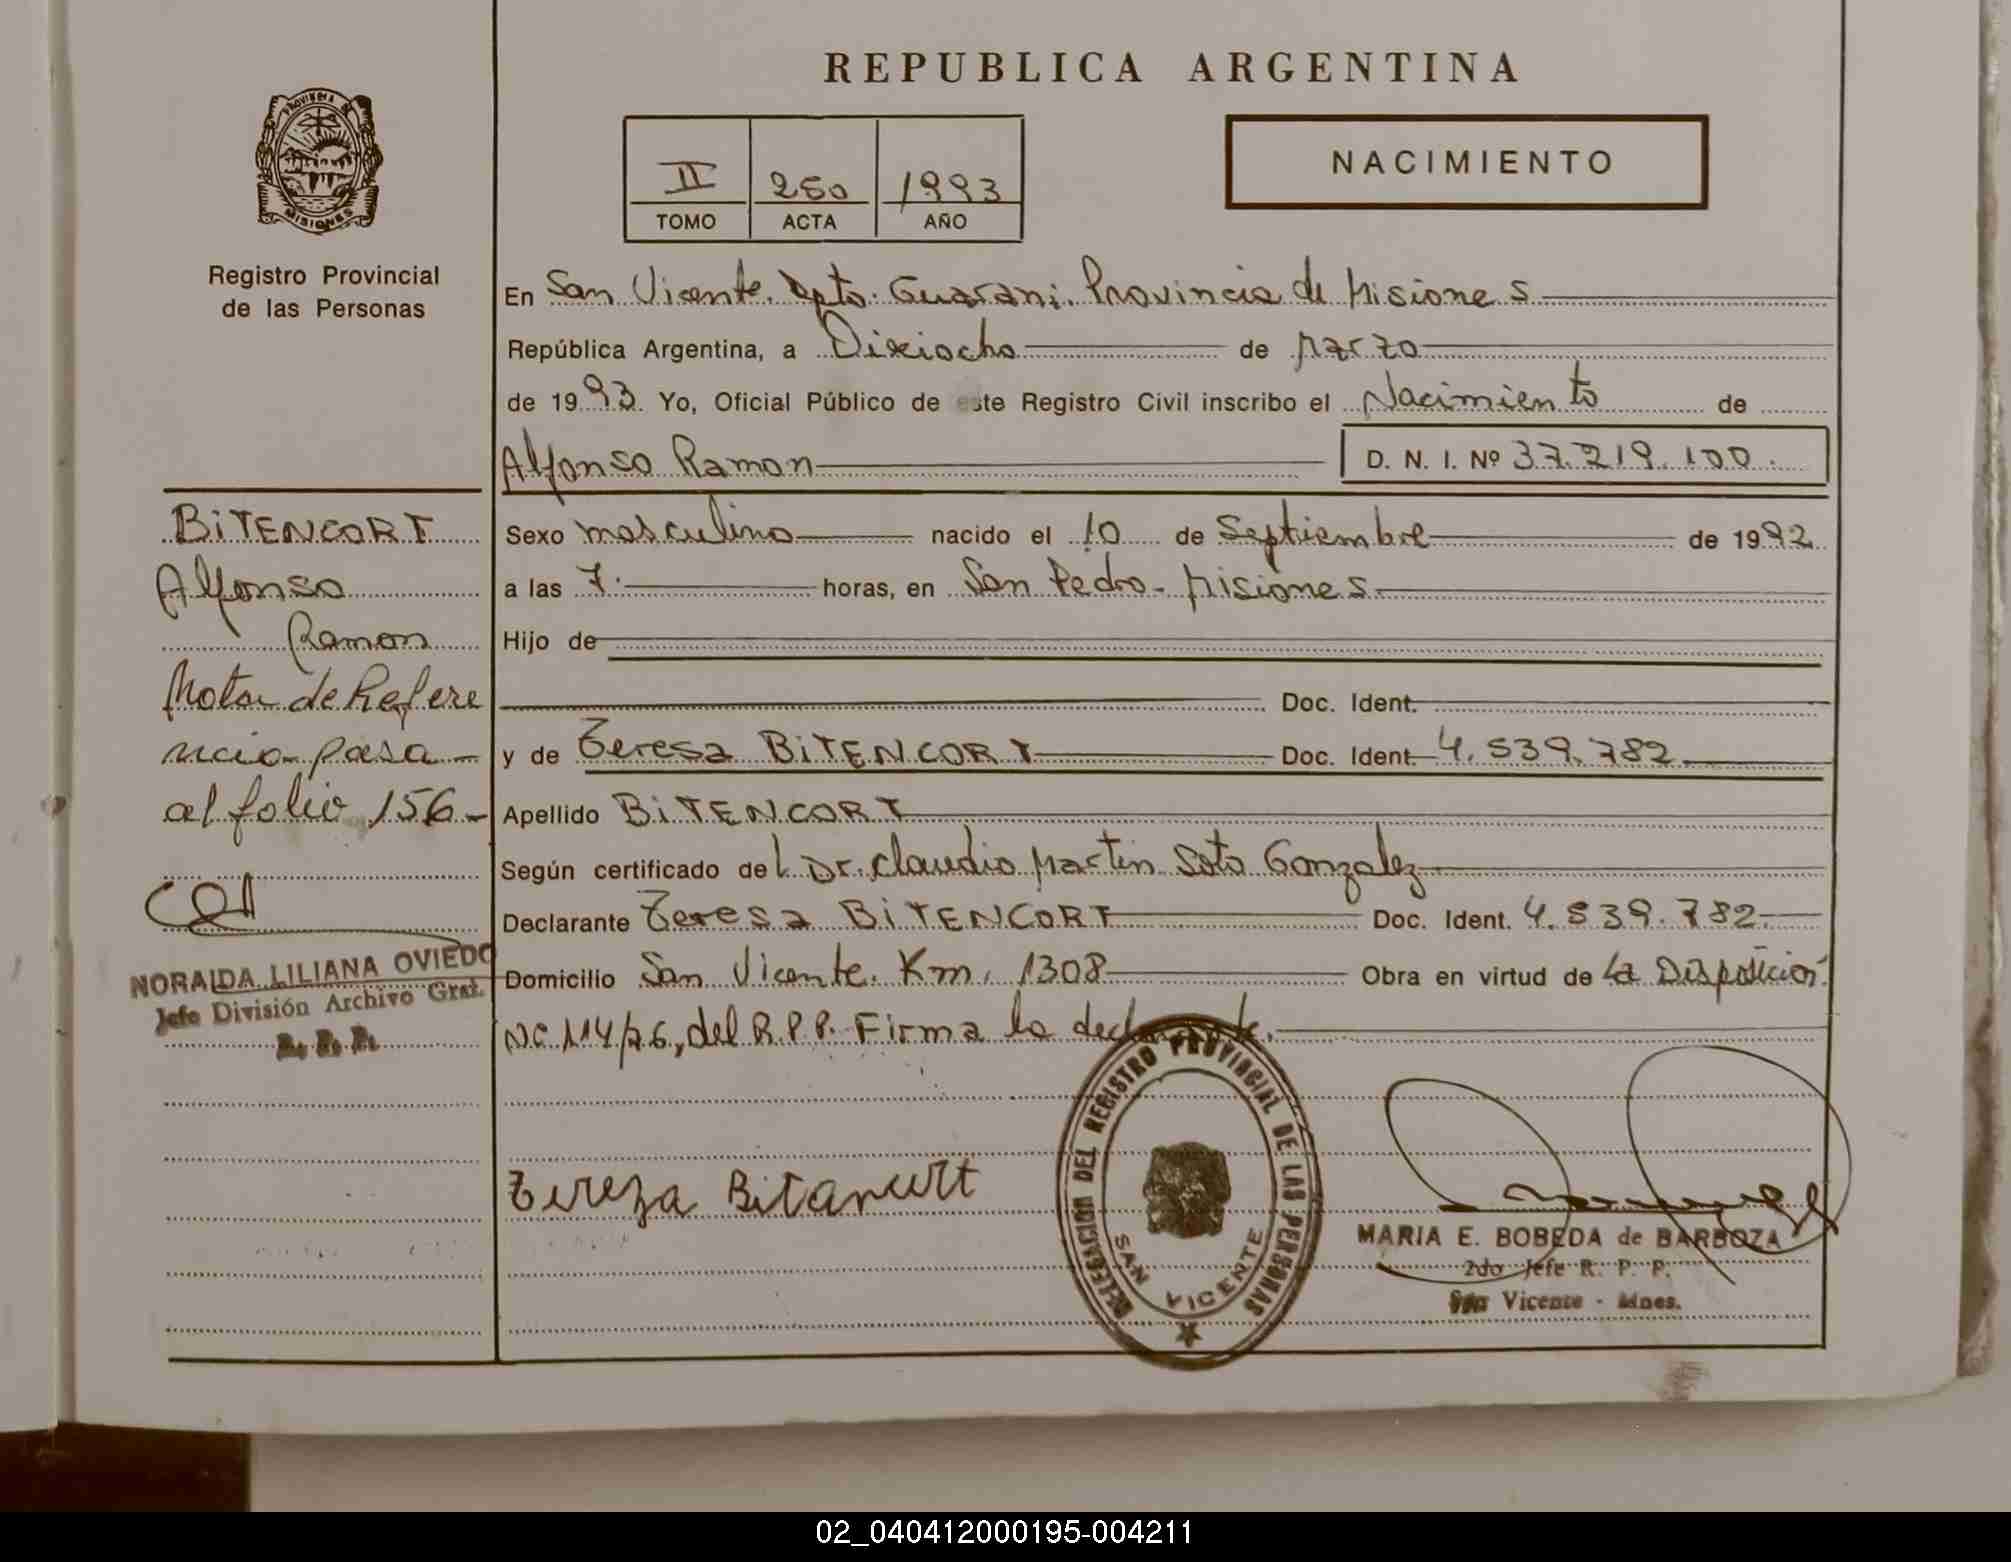 REPUBLICA ARGENTINA
PROVINCIA DE
MISIONES
Registro Provincial
de las Personas
II 250 1993
TOMO ACTA AÑO
NACIMIENTO
En San Vicente. Dpto. Guarani. Provincia de Misiones
República Argentina, a Dieciocho de Marzo
de 1993. Yo, Oficial Público de este Registro Civil inscribo el Nacimiento de
Alfonso Ramon D. N. I. Nº 37.219.100.
Sexo masculino nacido el 10 de Septiembre de 1992
a las 7. horas, en San Pedro - Misiones
Hijo de
Doc. Ident.
y de Teresa BiTENCORT Doc. Ident 4.539.782
Apellido BiTENCORT
Según certificado del Dr. Claudio Martin Soto Gonzalez
Declarante Teresa BiTENCORT Doc. Ident. 4.539.782
Domicilio San Vicente. Km. 1308 Obra en virtud de la Disposicion
Nº 114/76, del R.P.P. Firma la declarante.
BiTENCORT
Alfonso
Ramon
Nota de Refere
ncia pasa
al folio 156-
NORAIDA LILIANA OVIEDO
Jefe División Archivo Gral.
R. P. P.
Tereza Bitancurt
DELEGACION DEL REGISTRO PROVINCIAL DE LAS PERSONAS
SAN VICENTE
MARIA E. BOBEDA de BARBOZA
2do Jefe R. P. P.
San Vicente - Mnes.
02_040412000195-004211